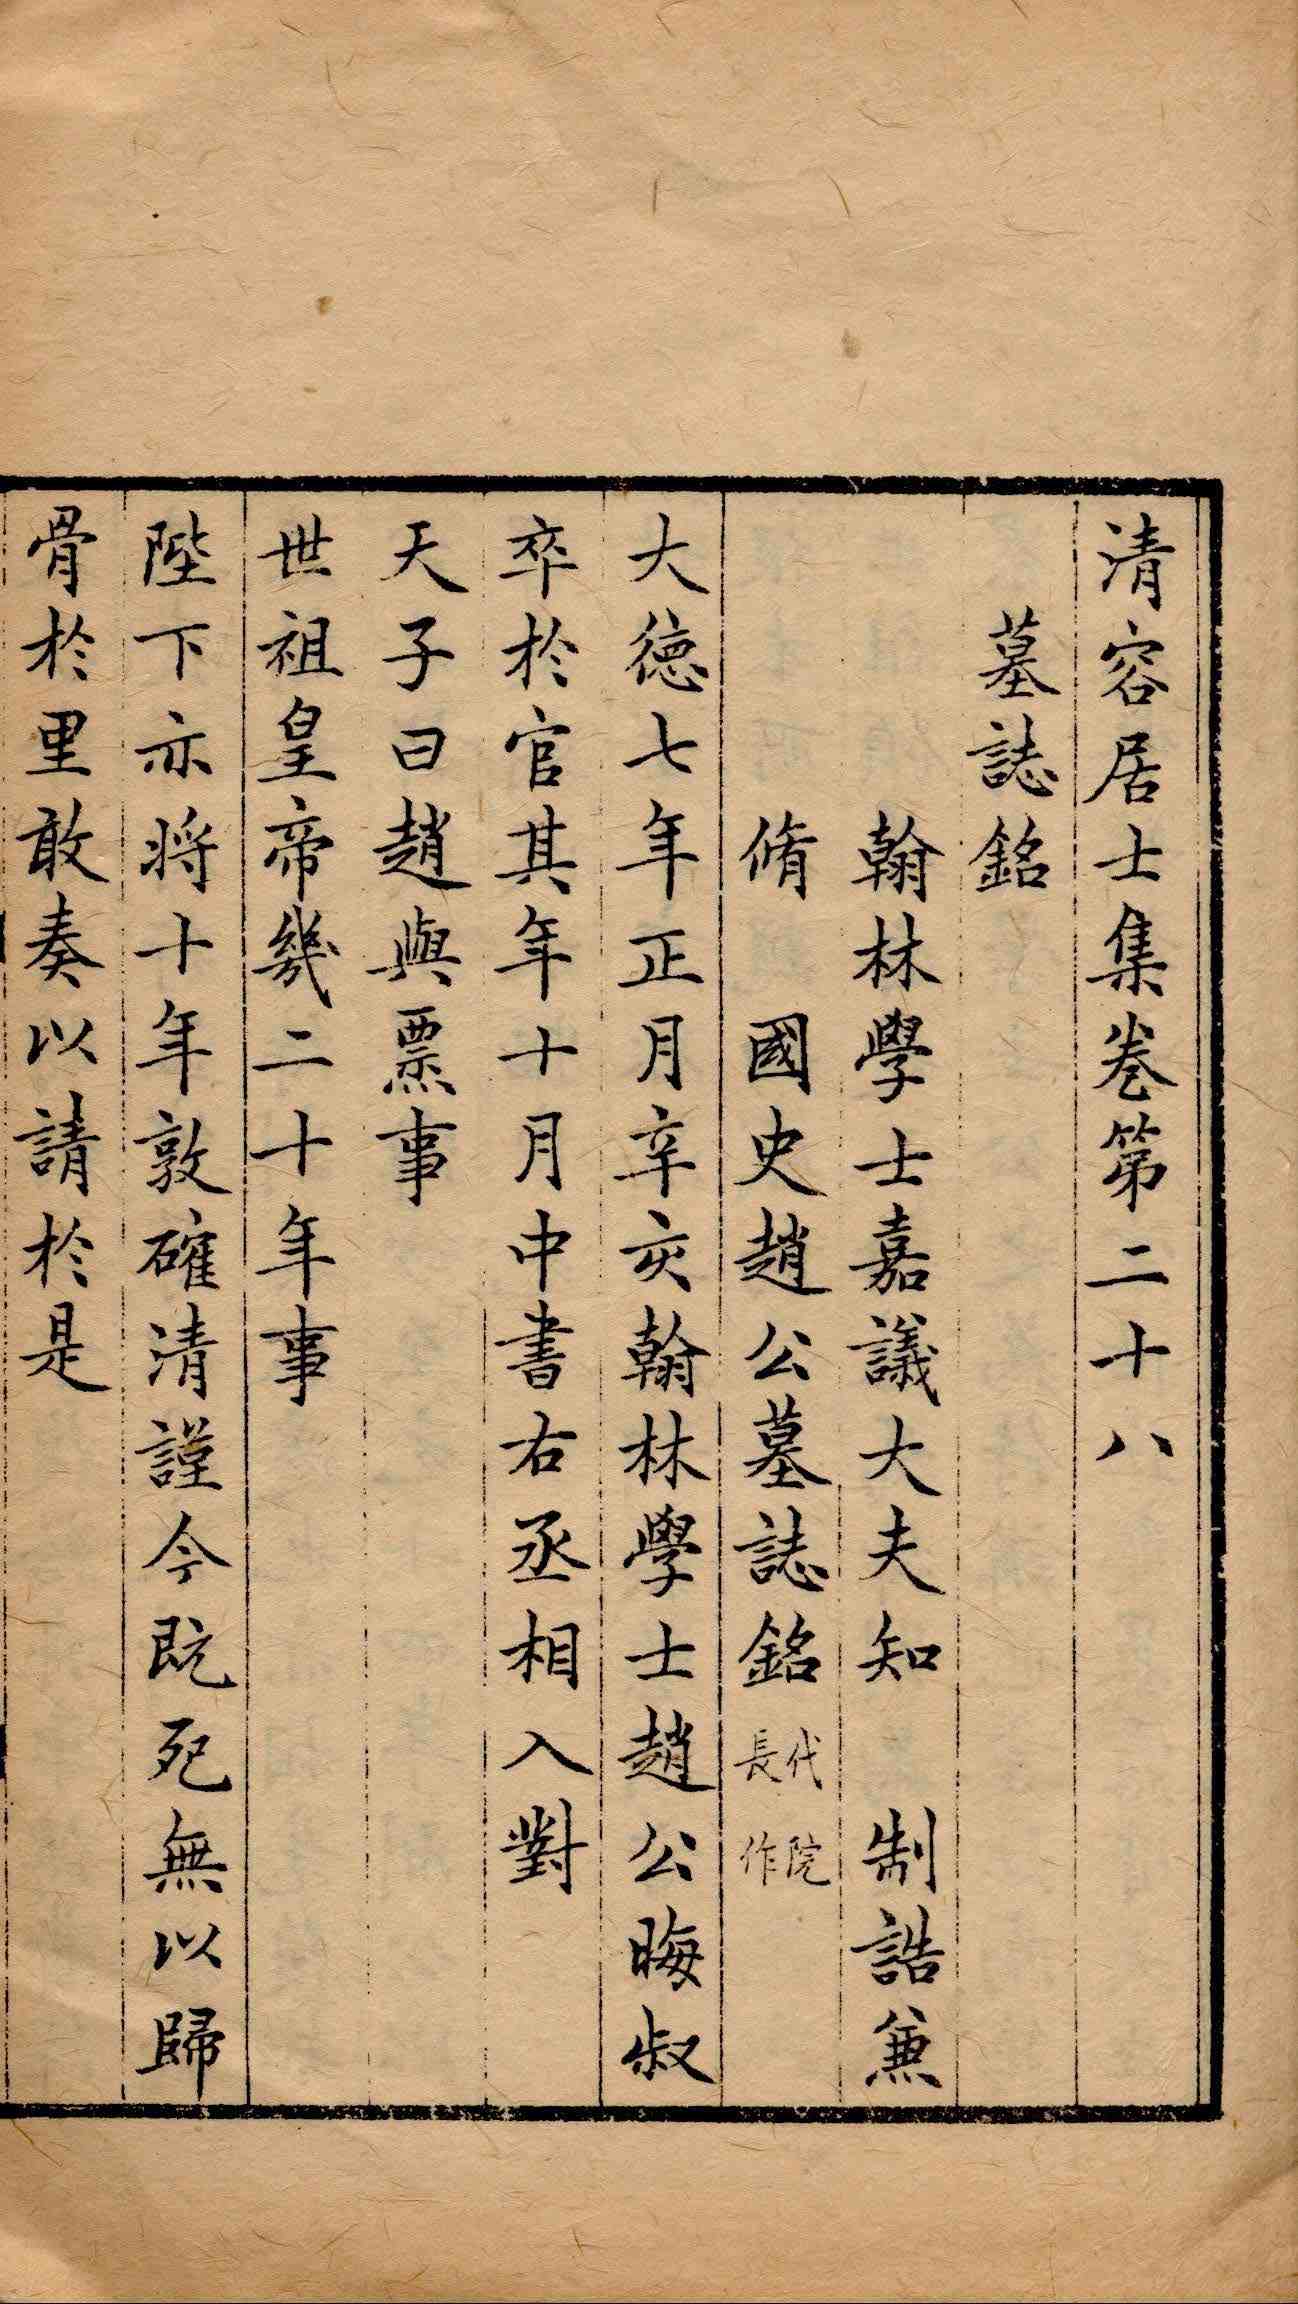 清容居士集卷第二十八
墓誌銘
翰林學士嘉議大夫知　制誥兼
脩　國史趙公墓誌銘代院長作
大德七年正月辛亥翰林學士趙公晦叔
卒於官其年十月中書右丞相入對
天子曰趙與票事
世祖皇帝幾二十年事
陛下亦將十年敦確清謹今既死無以歸
骨於里敢奏以請於是